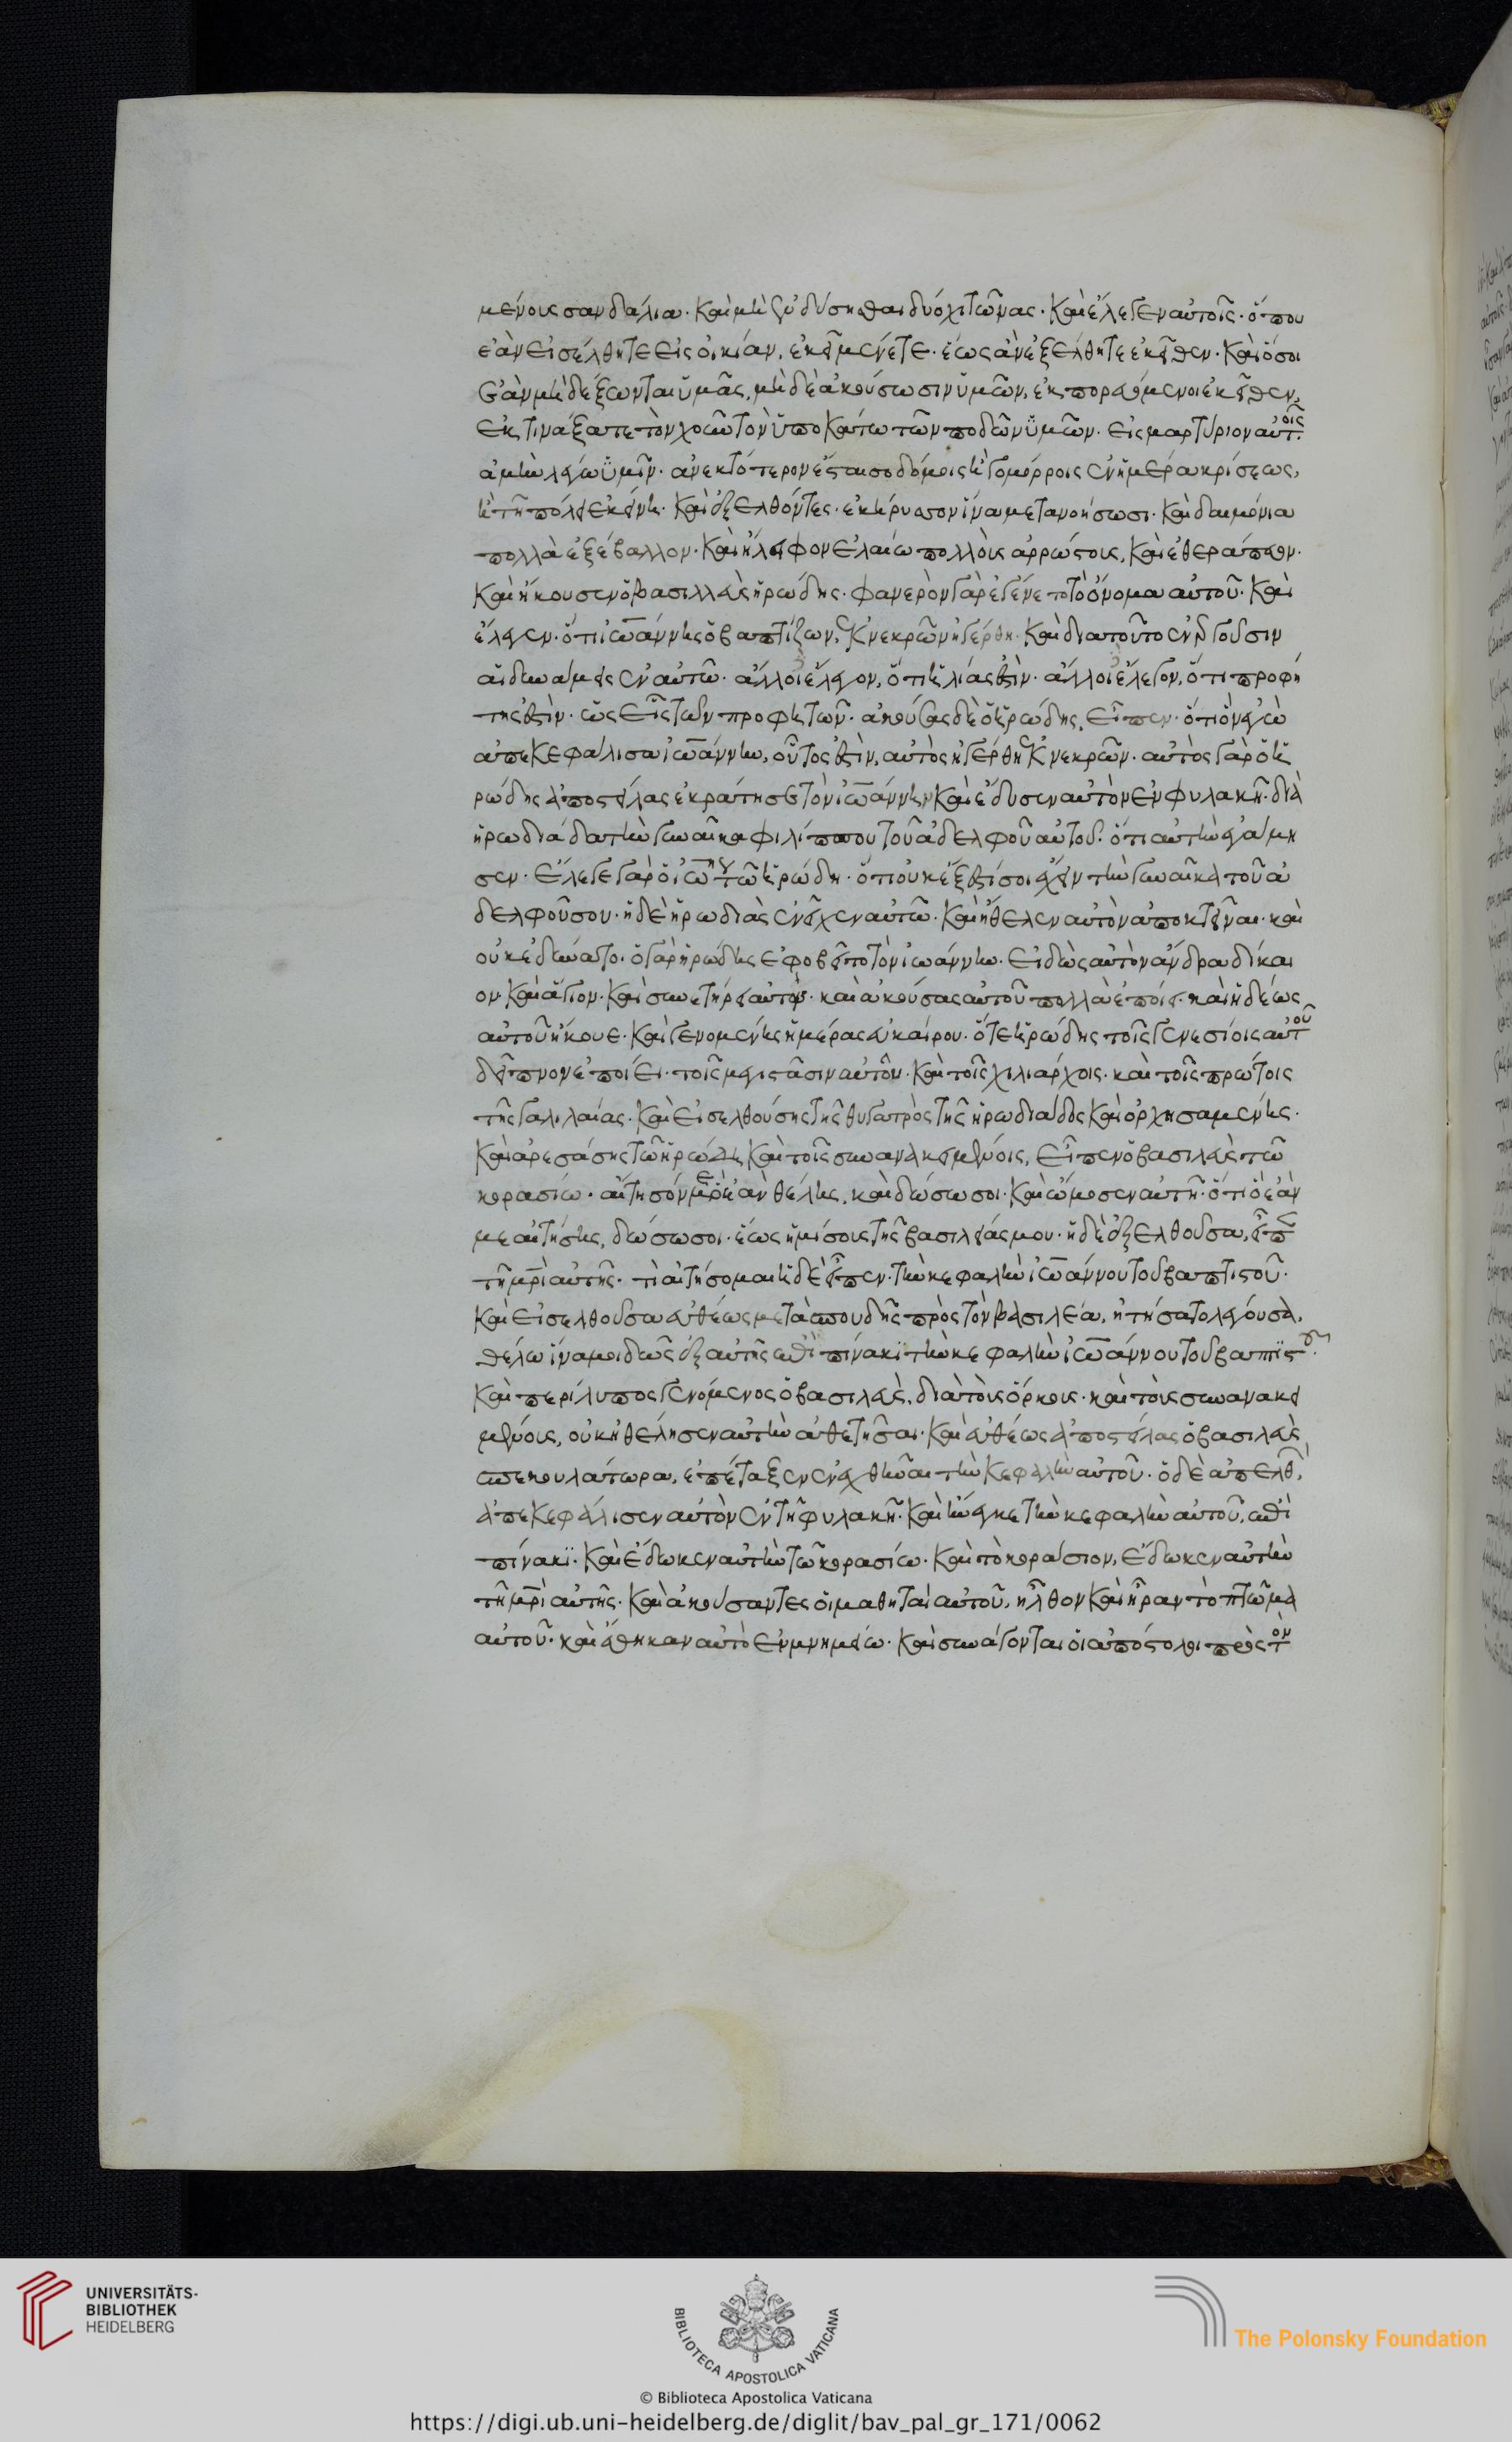 μένους σανδάλια· καὶ μὴ ἐνδύσησθαι δύο χιτῶνας· καὶ ἔλεγεν αὐτοῖς· ὅπου
ἐὰν εἰσέλθητε εἰς οἰκίαν, ἐκεῖ μένετε· ἕως ἂν ἐξέλθητε ἐκεῖθεν· καὶ ὅσοι
ἐὰν μὴ δέξωνται ὑμᾶς, μὴ δὲ ἀκούσωσιν ὑμῶν, ἐκπορευόμενοι ἐκεῖθεν,
ἐκτινάξατε τὸν χοῦν τὸν ὑποκάτω τῶν ποδῶν ὑμῶν· εἰς μαρτύριον αὐτοῖς·
ἀμὴν λέγω ὑμῖν· ἀνεκτότερον ἔσται σοδόμοις ἢ γομόρροις ἐν ἡμέρα κρίσεως,
ἢ τῇ πόλει ἐκείνη· καὶ ἐξελθόντες· ἐκήρυσσον ἵνα μετανοήσωσι· καὶ δαιμόνια
πολλὰ ἐξέβαλλον· καὶ ἤλειφον ἐλαίω πολλοὺς ἀρρώστους, καὶ ἐθεράπευον·
καὶ ἤκουσεν ὁ βασιλεὺς ἡρώδης· φανερὸν γὰρ ἐγένετο τὸ ὄνομα αὐτοῦ· καὶ
ἔλεγεν· ὅτι ἰωάννης ὁ βαπτίζων, ἐκ νεκρῶν ἠγέρθη· καὶ διατοῦτο ἐνεργοῦσιν
αἱ δυνάμεις ἐν αὐτῶ· ἄλλοι ἔλεγον, ὅτι ἠλίας ἐστὶν· ἄλλοι ἔλεγον, ὅτι προφή
της ἐστὶν· ὡς εἷς τῶν προφητῶν· ἀκούσας δὲ ὁ ἡρώδης, εἶπεν· ὅτι ὃν ἐγὼ
ἀπεκεφάλισα ἰωάννην, οὗτος ἐστὶν, αὐτὸς ἠγέρθη ἐκ νεκρῶν· αὐτὸς γὰρ ὁ ἡ
ρώδης ἀποστείλας ἐκράτησε τὸν ἰωάννην καὶ ἔδησεν αὐτὸν ἐν φυλακῇ· διὰ
ἡρωδιάδα τὴν γυναῖκα φιλίππου τοῦ ἀδελφοῦ αὐτοῦ· ὅτι αὐτὴν ἐγάμη
σεν· ἔλεγε γὰρ ὁ ἰωάννης τῶ ἡρώδη· ὅτι οὐκ ἔξεστί σοι ἔχειν τὴν γυναῖκα τοῦ ἀ
δελφοῦ σου· ἡ δὲ ἡρωδιὰς ἐνεῖχεν αὐτῶ· καὶ ἤθελεν αὐτὸν ἀποκτεῖναι· καὶ
οὐκ ἐδύνατο· ὁ γὰρ ἡρώδης ἐφοβεῖτο τὸν ἰωάννην· εἰδὼς αὐτὸν ἄνδρα δίκαι
ον· καὶ ἅγιον· καὶ συνετήρει αὐτόν· καὶ ἀκούσας αὐτοῦ πολλὰ ἐποίει· καὶ ἡδέως
αὐτοῦ ἤκουε· καὶ γενομένης ἡμέρας εὐκαίρου· ὅτε ἡρώδης τοῖς γενεσίοις αὐτοῦ
δεῖπνον ἐποίει· τοῖς μεγιστᾶσιν αὐτοῦ· καὶ τοῖς χιλιάρχοις· καὶ τοῖς πρώτοις
τῆς γαλιλαίας· καὶ εἰσελθούσης τῆς θυγατρὸς τῆς ἡρωδιάδος καὶ ὀρχησαμένης·
καὶ ἀρεσάσης τῶ ἡρώδη καὶ τοῖς συνανακειμένοις, εἶπεν ὁ βασιλεὺς τῶ
κορασίω· αἴτησόν με ὃ ἐὰν θέλης, καὶ δώσω σοι· καὶ ὤμοσεν αὐτῇ· ὅτι ὃ ἐάν
με αἰτήσης, δώσω σοι· ἕως ἡμίσους τῆς βασιλείας μου· ἡ δὲ ἐξελθοῦσα, εἶπε
τῇ μρὶ αὐτῆς· τί αἰτήσομαι ἡ δὲ εἶπεν· τὴν κεφαλὴν ἰωάννου τοῦ βαπτιστοῦ·
καὶ εἰσελθοῦσα εὐθέως μετὰ σπουδῆς πρὸς τὸν βασιλέα, ἠτήσατο λέγουσα,
θέλω ἵνα μοι δῶς ἐξ αὐτῆς ἐπὶ πίνακι τὴν κεφαλὴν ἰωάννου τοῦ βαπτιστοῦ·
καὶ περίλυπος γενόμενος ὁ βασιλεὺς, διὰ τοὺς ὅρκους· καὶ τοὺς συνανακει
μένους, οὐκ ἠθέλησεν αὐτὴν ἀθετῆσαι· καὶ εὐθέως ἀποστείλας ὁ βασιλεὺς
σπεκουλάτωρα, ἐπέταξεν ἐνεχθῆναι τὴν κεφαλὴν αὐτοῦ· ὁ δὲ ἀπελθὼν
ἀπεκεφάλισεν αὐτὸν ἐν τῇ φυλακῇ· καὶ ἤνεγκε τὴν κεφαλὴν αὐτοῦ, ἐπὶ
πίνακι· καὶ ἔδωκεν αὐτὴν τῶ κορασίω· καὶ τὸ κοράσιον, ἔδωκεν αὐτὴν
τῇ μρὶ αὐτῆς· καὶ ἀκούσαντες οἱ μαθηταὶ αὐτοῦ, ἦλθον καὶ ἦραν τὸ πτῶμα
αὐτοῦ· καὶ ἔθηκαν αὐτὸ ἐν μνημείω· καὶ συνάγονται οἱ ἀπόστολοι πρὸς τὸν
UNIVERSITÄTS-
BIBLIOTHEK
HEIDELBERG
BIBLIOTECA APOSTOLICA VATICANA
The Polonsky Foundation
© Biblioteca Apostolica Vaticana
https://digi.ub.uni-heidelberg.de/diglit/bav_pal_gr_171/0062